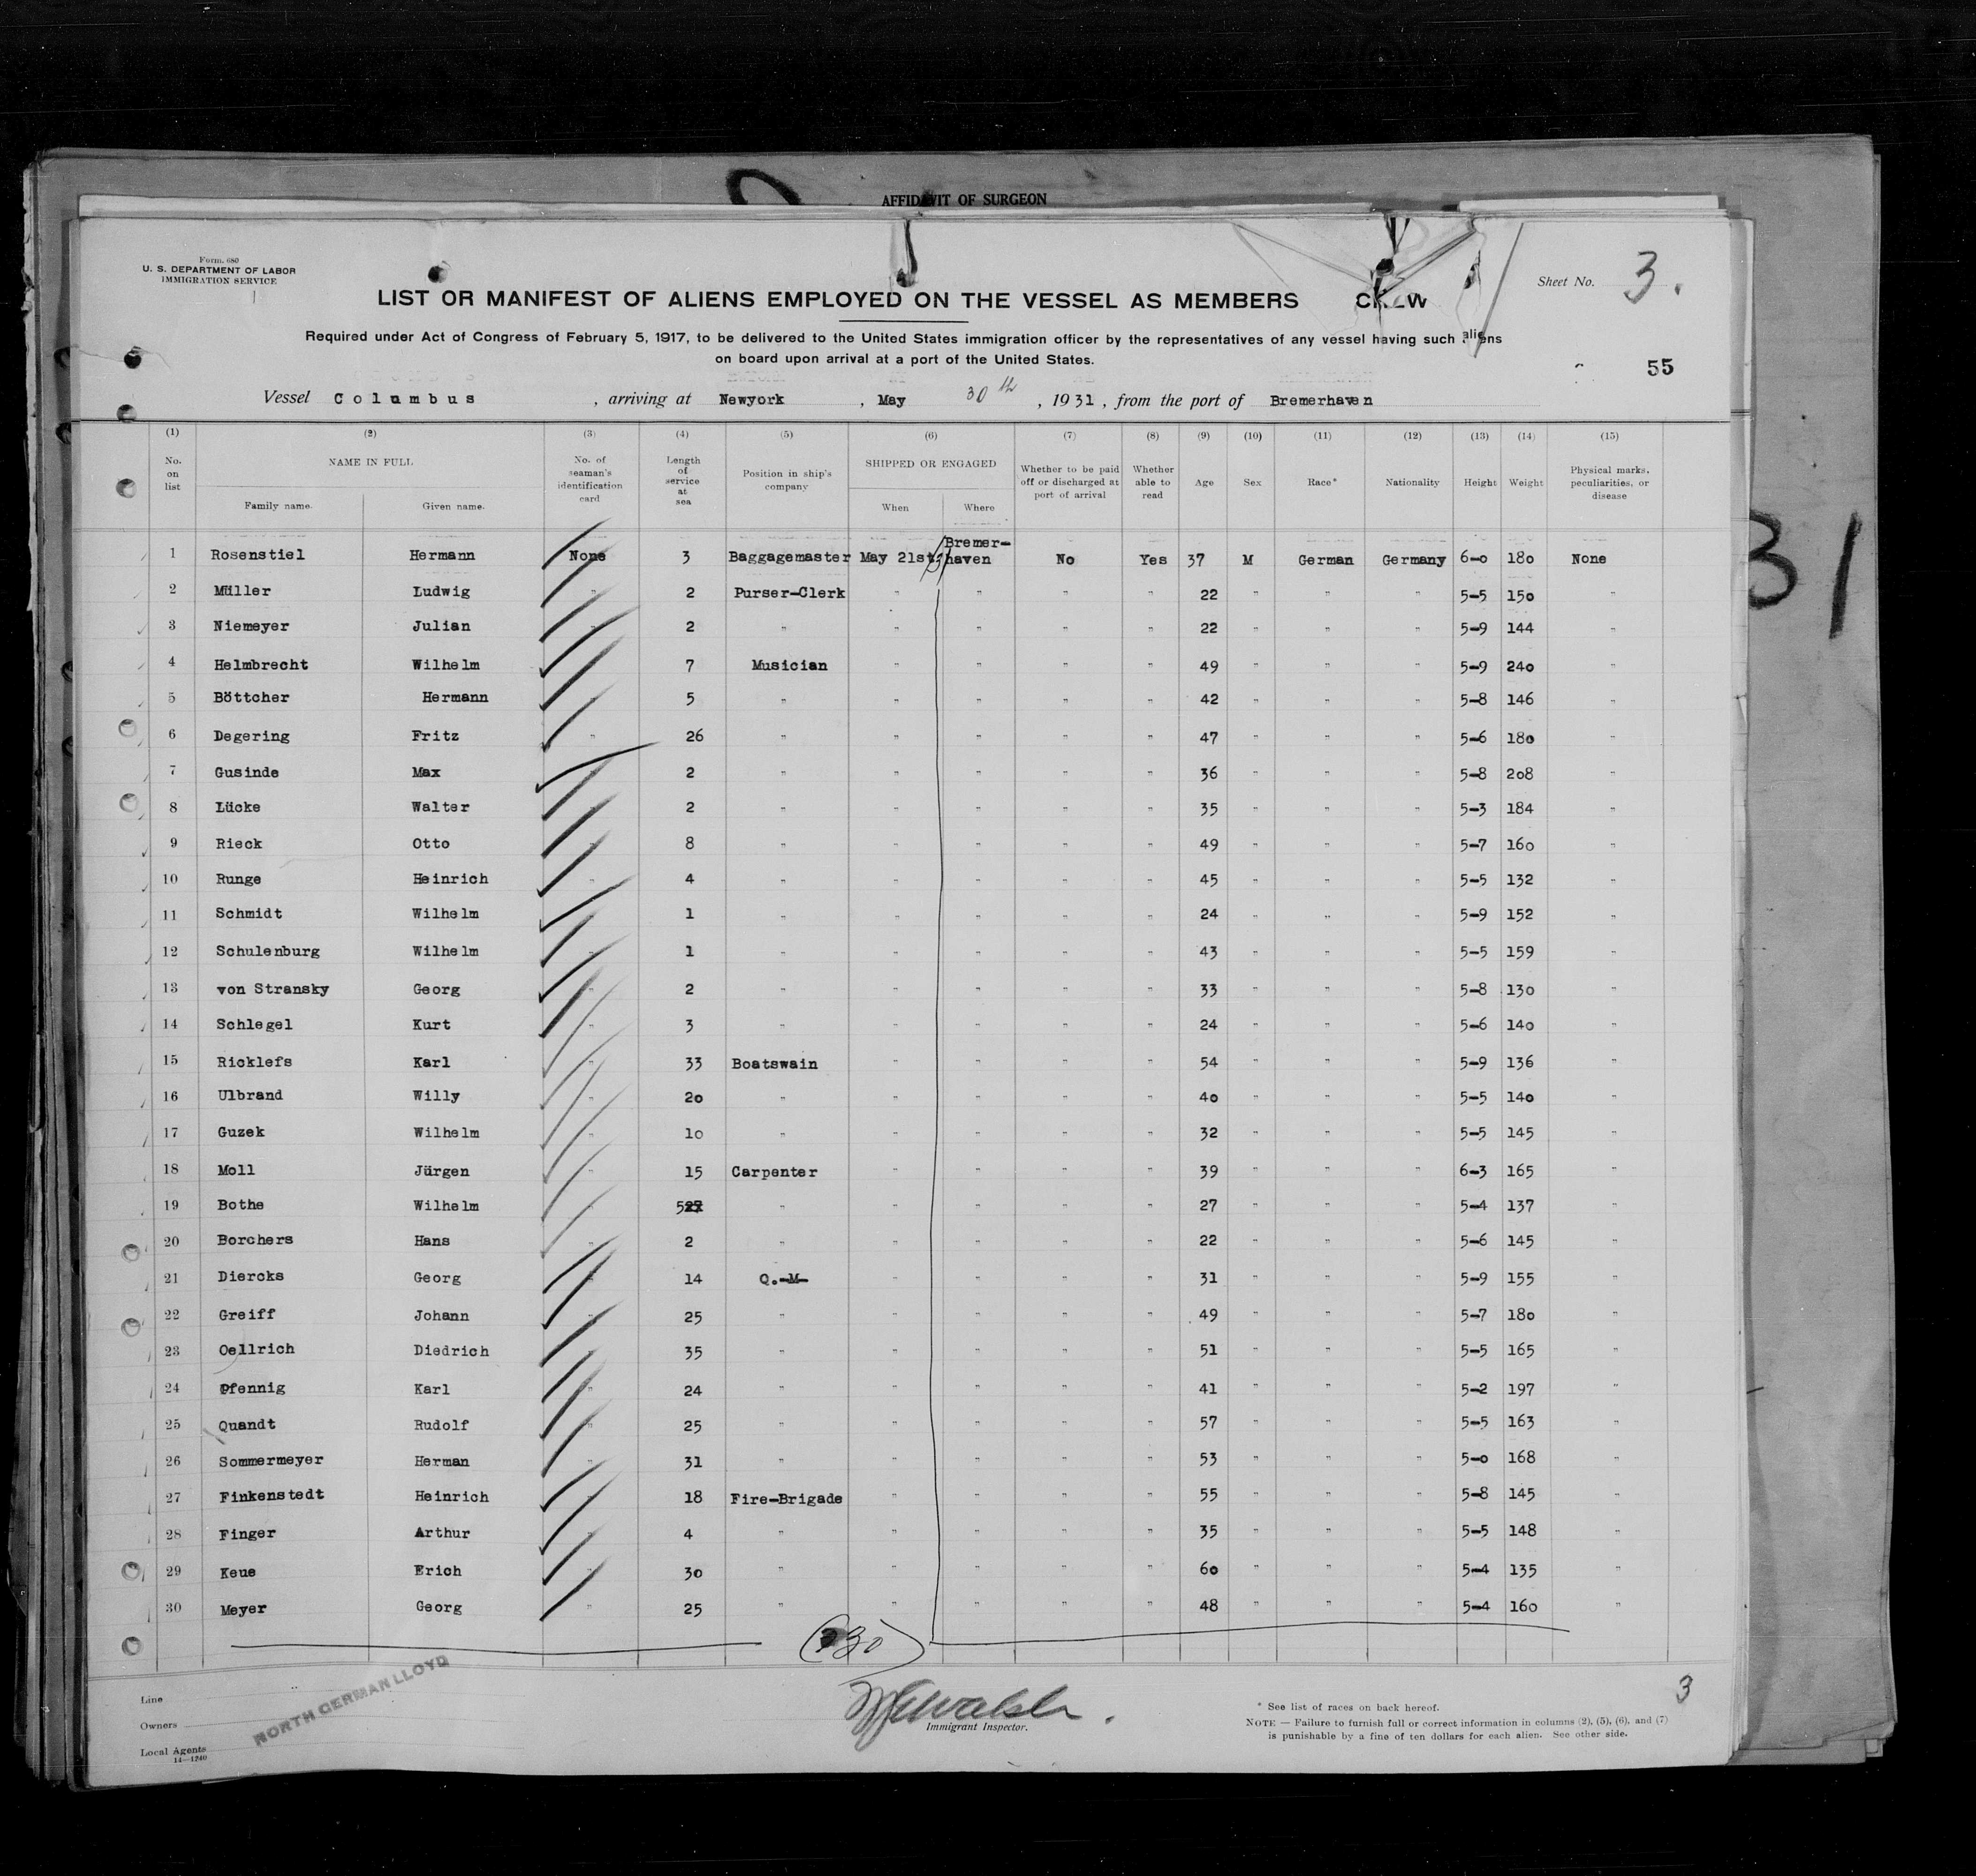 AFFIDAVIT OF SURGEON
Form. 680
U. S. DEPARTMENT OF LABOR
IMMIGRATION SERVICE
Sheet No. 3.
LIST OR MANIFEST OF ALIENS EMPLOYED ON THE VESSEL AS MEMBERS CREW
Required under Act of Congress of February 5, 1917, to be delivered to the United States immigration officer by the representatives of any vessel having such aliens
on board upon arrival at a port of the United States.
55
Vessel Columbus, arriving at Newyork, May 30th, 1931, from the port of Bremerhaven
31
(1) (2) (3) (4) (5) (6) (7) (8) (9) (10) (11) (12) (13) (14) (15)
No. on list NAME IN FULL Family name. Given name. No. of seaman's identification card Length of service at sea Position in ship's company SHIPPED OR ENGAGED When Where Whether to be paid off or discharged at port of arrival Whether able to read Age Sex Race* Nationality Height Weight Physical marks, peculiarities, or disease
1 Rosenstiel Hermann None 3 Baggagemaster May 21st 31 Bremer-haven No Yes 37 M German Germany 6-0 180 None
2 Müller Ludwig " 2 Purser-Clerk " " " " 22 " " " 5-5 150 "
3 Niemeyer Julian " 2 " " " " " 22 " " " 5-9 144 "
4 Helmbrecht Wilhelm " 7 Musician " " " " 49 " " " 5-9 240 "
5 Böttcher Hermann " 5 " " " " " 42 " " " 5-8 146 "
6 Degering Fritz " 26 " " " " " 47 " " " 5-6 180 "
7 Gusinde Max " 2 " " " " " 36 " " " 5-8 208 "
8 Lücke Walter " 2 " " " " " 35 " " " 5-3 184 "
9 Rieck Otto " 8 " " " " " 49 " " " 5-7 160 "
10 Runge Heinrich " 4 " " " " " 45 " " " 5-5 132 "
11 Schmidt Wilhelm " 1 " " " " " 24 " " " 5-9 152 "
12 Schulenburg Wilhelm " 1 " " " " " 43 " " " 5-5 159 "
13 von Stransky Georg " 2 " " " " " 33 " " " 5-8 130 "
14 Schlegel Kurt " 3 " " " " " 24 " " " 5-6 140 "
15 Ricklefs Karl " 33 Boatswain " " " " 54 " " " 5-9 136 "
16 Ulbrand Willy " 20 " " " " " 40 " " " 5-5 140 "
17 Guzek Wilhelm " 10 " " " " " 32 " " " 5-5 145 "
18 Moll Jürgen " 15 Carpenter " " " " 39 " " " 6-3 165 "
19 Bothe Wilhelm " 5 " " " " " 27 " " " 5-4 137 "
20 Borchers Hans " 2 " " " " " 22 " " " 5-6 145 "
21 Diercks Georg " 14 Q.-M- " " " " 31 " " " 5-9 155 "
22 Greiff Johann " 25 " " " " " 49 " " " 5-7 180 "
23 Oellrich Diedrich " 35 " " " " " 51 " " " 5-5 165 "
24 Pfennig Karl " 24 " " " " " 41 " " " 5-2 197 "
25 Quandt Rudolf " 25 " " " " " 57 " " " 5-5 163 "
26 Sommermeyer Herman " 31 " " " " " 53 " " " 5-0 168 "
27 Finkenstedt Heinrich " 18 Fire-Brigade " " " " 55 " " " 5-8 145 "
28 Finger Arthur " 4 " " " " " 35 " " " 5-5 148 "
29 Keue Erich " 30 " " " " " 60 " " " 5-4 135 "
30 Meyer Georg " 25 " " " " " 48 " " " 5-4 160 "
(30)
Line
Owners
Local Agents
14—1240
NORTH GERMAN LLOYD
Walsh
Immigrant Inspector.
3
* See list of races on back hereof.
NOTE — Failure to furnish full or correct information in columns (2), (5), (6), and (7)
is punishable by a fine of ten dollars for each alien. See other side.